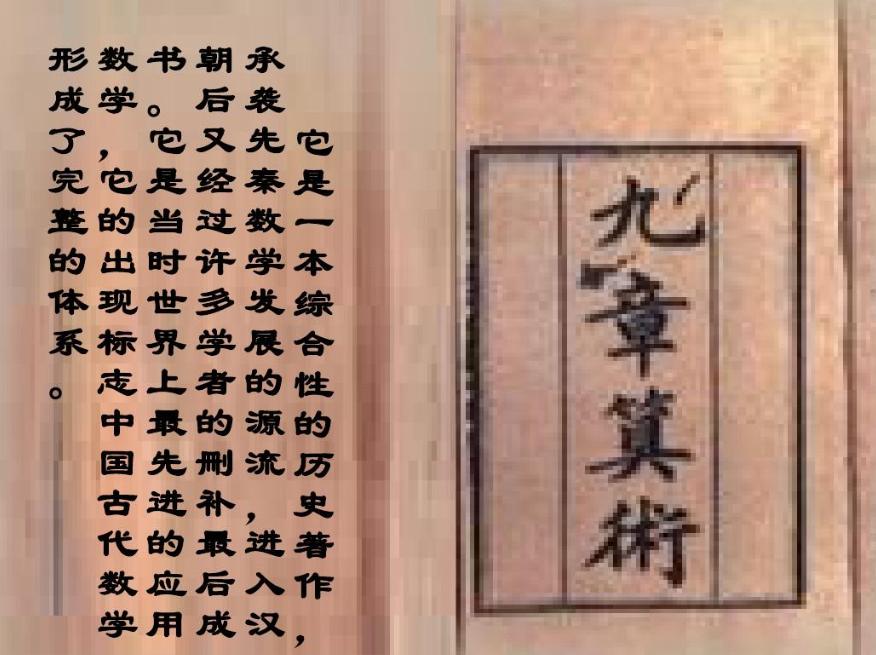 九章算術
它是一本综合性的历史著作，
承袭先秦数学发展的源流，进入汉
朝后又经过许多学者的删补最后成
书。它是当时世界上最先进的应用
数学，它的出现标志中国古代数学
形成了完整的体系。